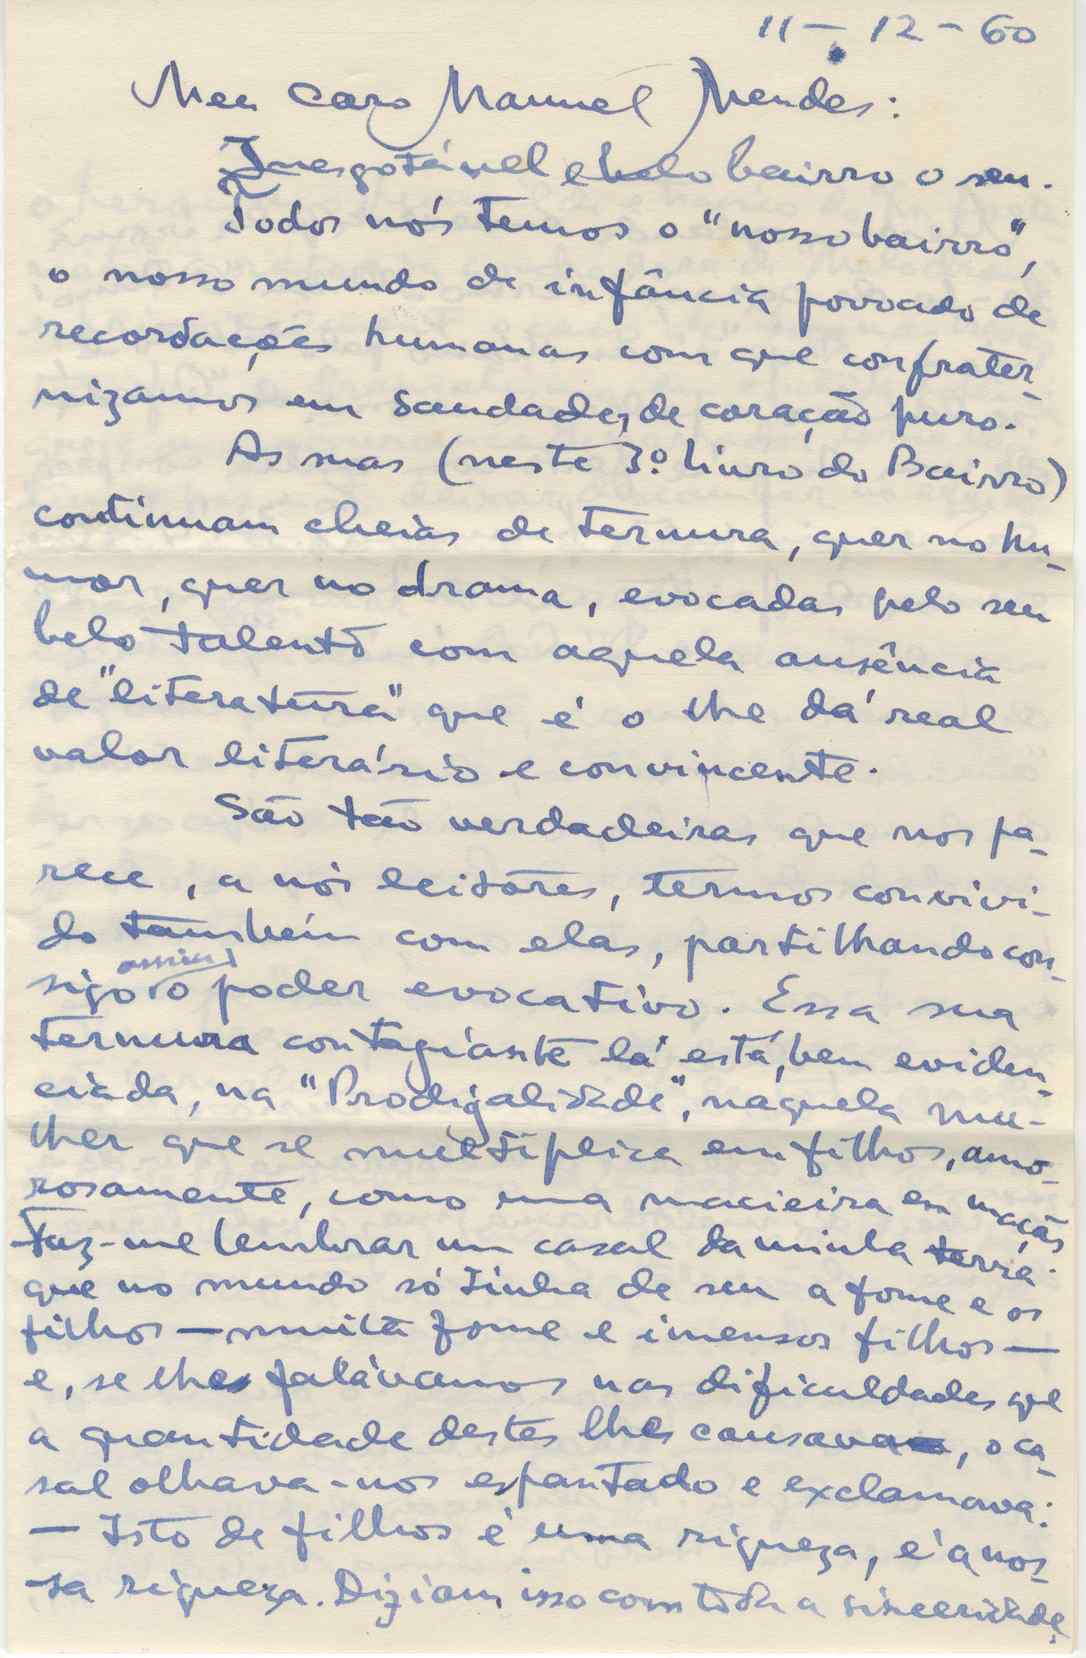 11-12-60
Meu caro Manuel Mendes:
Inesgotável e belo bairro o seu.
Todos nós temos o "nosso bairro",
o nosso mundo de infância povoado de
recordações humanas com que confrater-
nizamos em saudades de coração puro.
As suas (neste 3º livro do Bairro)
continuam cheias de ternura, quer no hu-
mor, quer no drama, evocadas pelo seu
belo talento com aquela ausência
de "literatura" que é o lhe dá real
valor literário e convincente.
São tão verdadeiras que nos pa-
rece, a nós leitores, termos convivi-
do também com elas, partilhando con-
sigo assim o poder evocativo. Essa sua
ternura contagiante lá está, bem eviden-
ciada, na "Prodigalidade", naquela mu-
lher que se multiplica em filhos, amo-
rosamente, como uma macieira em maçãs.
Faz-me lembrar um casal da minha terra
que no mundo só tinha de seu a fome e os
filhos — muita fome e imensos filhos —
e, se lhes falávamos nas dificuldades que
a quantidade destes lhes causava, o ca-
sal olhava-nos espantado e exclamava:
— Isto de filhos é uma riqueza, é a nos-
sa riqueza. Diziam isso com toda a sinceridade,